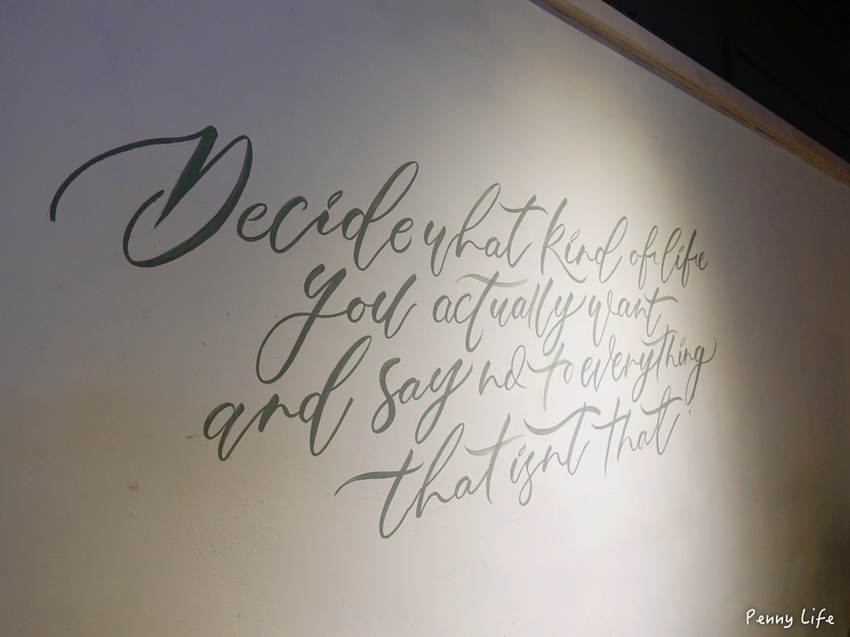 Decide what kind of life
you actually want
and say no to everything
that isnt that
Penny Life